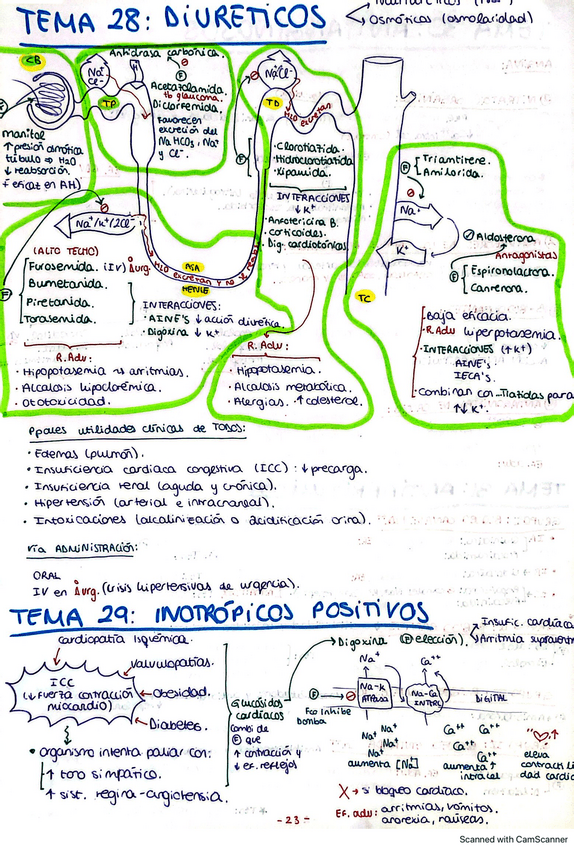 TEMA 28: DIURETICOS
Osmóticos (osmolaridad)
CB
Na+
Cl-
TP
manitol
↑ presión osmótica
túbulo → H2O
↓ reabsorción.
Anhidrasa carbónica.
Acetazolamida.
glaucoma.
Diclorfemida.
Favorecen
excreción del
NaHCO3, Na+
y Cl-.
Na+Cl-
TD
H2O excretan
Clorotiatida.
Hidroclorotiatida
Xipamida.
INTERACCIONES
↓ K+
Anfotericina B.
Corticoides.
Dig. cardiotónicos
Triamtirene.
Amilorida.
Na+
K+
Aldosterona.
Antagonistas
Espironolactona.
Canrenona.
TC
Baja eficacia.
R.Adv hiperpotasemia.
INTERACCIONES (↑K+)
AINE's
IECA's.
Combinan con -Tiatidas para
↑↓ K+.
Na+/K+/2Cl-
(ALTO TECHO)
Furosemida. (IV) Åurg.
Bumetanida.
Piretanida.
Torasemida.
ASA
HENLE
INTERACCIONES:
AINE'S ↓ acción diurética.
Digoxina ↓ K+
R.Adv:
Hipopotasemia → arritmias.
Alcalosis hipoclorémica.
Ototoxicidad.
R. Adv:
Hipopotasemia.
Alcalosis metabólica.
Alergias. ↑ colesterol.
Ppales utilidades clínicas de TODOS:
· Edemas (pulmón).
· Insuficiencia cardiaca congestiva (ICC) : ↓ precarga.
· Insuficiencia renal (aguda y crónica).
· Hipertensión (arterial e intracraneal).
· Intoxicaciones (alcalinización o acidificación orina).
Vía ADMINISTRACIÓN:
ORAL
IV en Åurg. (crisis hipertensivas de urgencia).
TEMA 29: INOTRÓPICOS POSITIVOS
cardiopatía isquémica.
valvulopatías.
ICC
(↓ fuerza contracción
miocardio)
Obesidad.
Diabetes.
· Organismo intenta paliar con:
↑ tono simpático.
↑ sist. regina-angiotensia.
Glucósidos
cardíacos
↑ contracción y
↓ ef. reflejos
Digoxina (elección).
Insufic. cardíaca
Arritmia supravent
Fco inhibe
bomba
Na+
Na-K
ATPasa
Ca++
Na-Ca
INTERC.
DIGITAL
Na+ Na+
Na+ Na+
aumenta [Na]
Ca++ Ca++
Ca++ Ca++
aumenta ↑
intracel
eleva
contractili
dad cardíac
X → si bloqueo cardíaco.
Ef. adv: arritmias, vómitos.
anorexia, náuseas.
-23-
Scanned with CamScanner